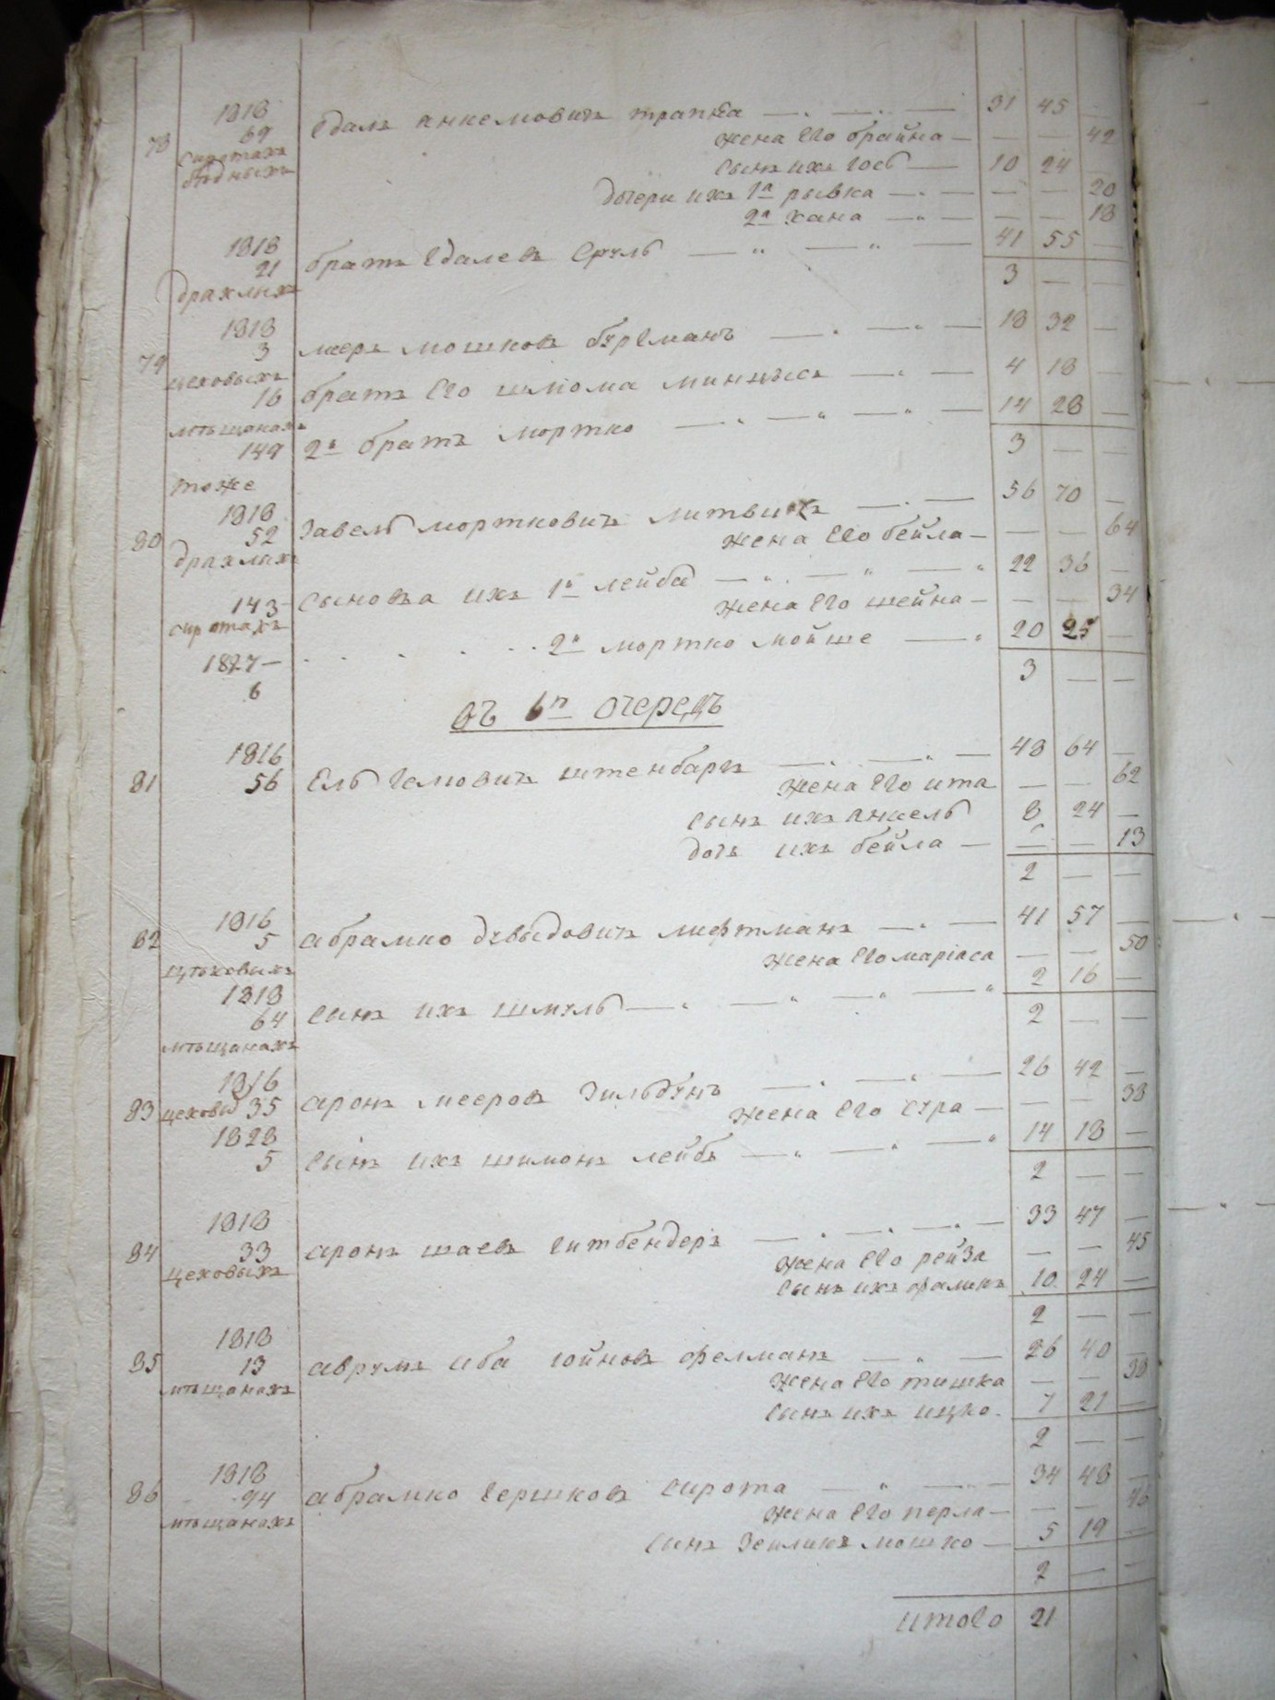 78 1818 69 сиротахъ бѣдныхъ
Едаль Анкемовичъ Трапка 31 45
жена Его брайна 42
сынъ ихъ Іось 10 24
дочери ихъ 1а рывка 20
2а хана 18
1818 21 драхлыхъ братъ Едалевъ Сруль 41 55
3
79 1818 3 цеховыхъ мееръ мошковъ бурманъ 18 32
16 мѣщанахъ братъ Его шліома 4 18
149 тоже 2й братъ мортко 14 28
3
80 1818 52 драхлыхъ Завель мортковичъ литвикъ 56 70
жена Его бейла 64
143 сиротахъ сыновья ихъ 1й лейба 22 36
жена Его шейна 34
1827 6 2й мортко мойше 20 25
3
въ 6й очередъ
81 1816 56 Ель Гемовичъ штенбаргъ 48 64
жена Его ита 62
сынъ ихъ анкель 8 24
дочь ихъ бейла 13
2
82 1816 5 цѣховыхъ абрамко дувыдовичъ лифтманъ 41 57
жена Его маріаса 50
1818 64 мѣщанахъ сынъ ихъ шмуль 2 16
2
83 1816 цеховы 35 аронъ мееровъ Зильдунъ 26 42
жена Его сура 38
1828 5 сынъ ихъ шимонъ лейбъ 14 18
2
84 1818 33 цеховыхъ аронъ шаевъ Гитбендеръ 33 47
жена Его рейза 45
сынъ ихъ фаликъ 10 24
2
85 1818 13 мѣщанахъ аврумъ иба іойновъ фелманъ 26 40
жена Его тишка 38
сынъ ихъ ицко 7 21
2
86 1818 94 мѣщанахъ абрамко Гершковъ сирота 34 48
жена Его перла 46
сынъ Зеиликъ мошко 5 19
2
итого 21